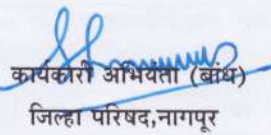 कार्यकारी अभियंता (बांध)
जिल्हा परिषद,नागपुर